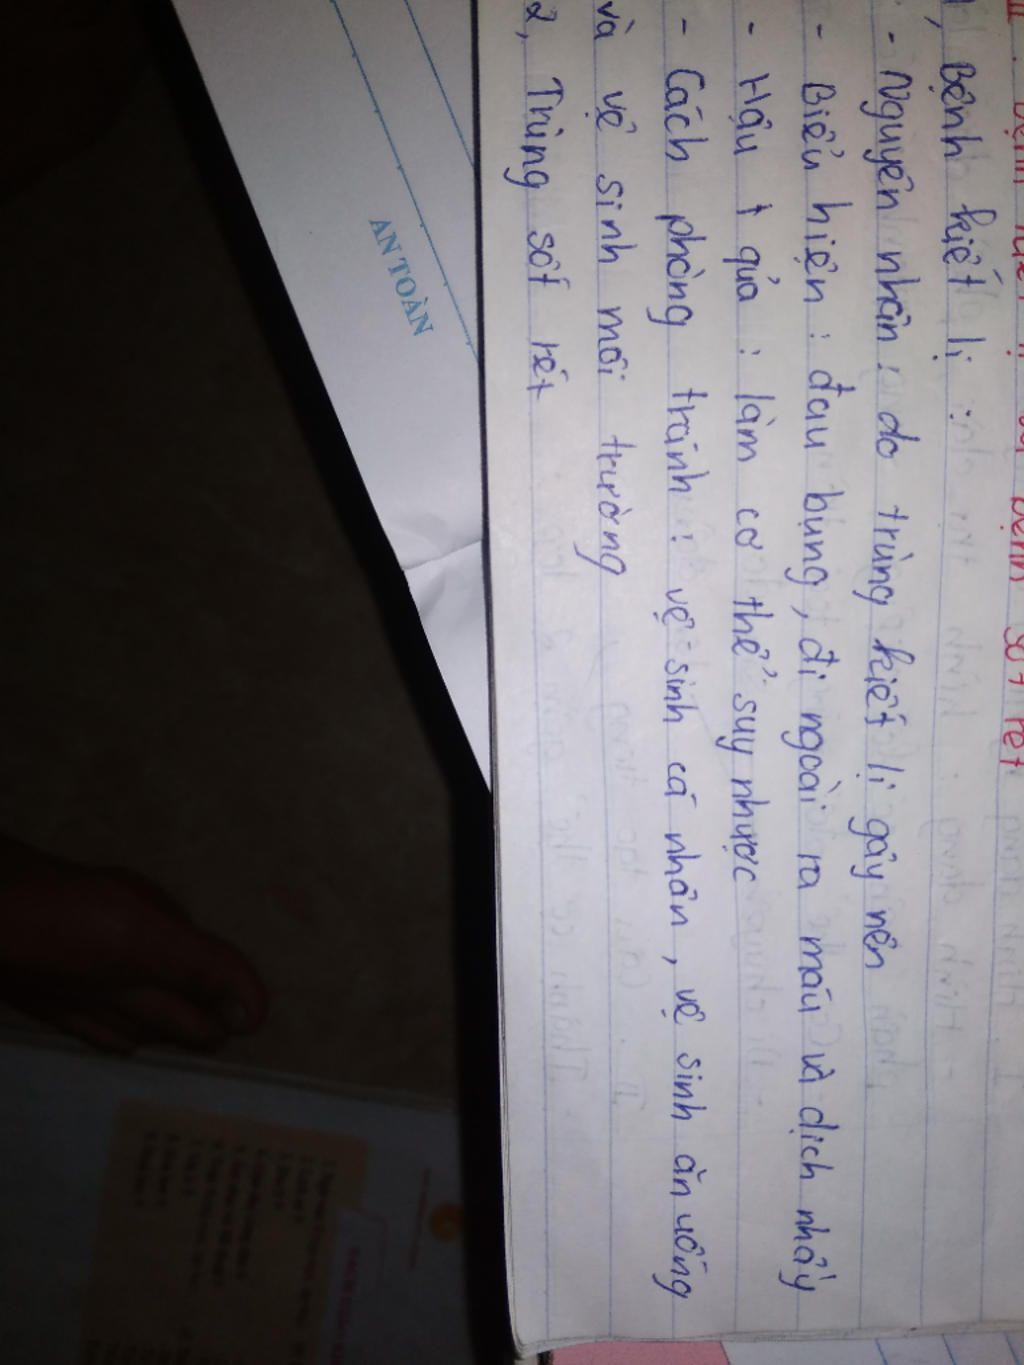 bệnh sốt rét
1, Bệnh kiết lị :
- Nguyên nhân : do trùng kiết lị gây nên
- Biểu hiện : đau bụng, đi ngoài ra máu và dịch nhầy
- Hậu quả : làm cơ thể suy nhược
- Cách phòng tránh : vệ sinh cá nhân, vệ sinh ăn uống
và vệ sinh môi trường
2, Trùng sốt rét
AN TOÀN